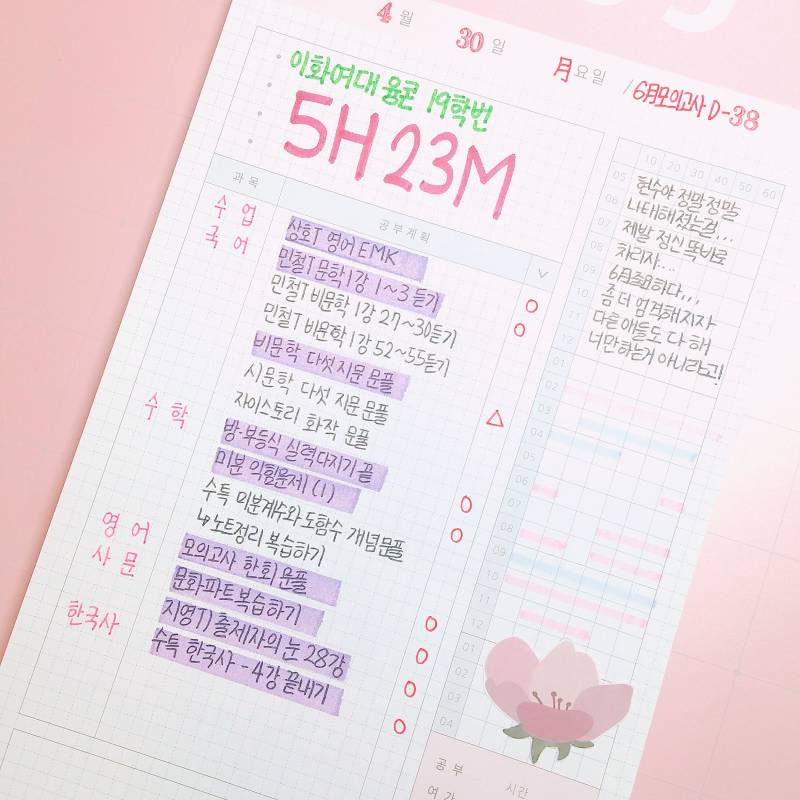 4월 30일 月요일 / 6月모의고사 D-38
이화여대 율곤 19학번
5H 23M
과목 공부계획
수업 상호T 영어 EMK
국어 민철T 문학 1강 1~3 듣기
민철T 비문학 1강 27~30듣기
민철T 비문학 1강 52~55듣기
비문학 다섯지문 문풀
시문학 다섯 지문 문풀
자이스토리 화작 문풀
수학 방·부등식 실력다지기 끝
미분 익힘문제 (1)
수특 미분계수와 도함수 개념문풀
↳노트정리 복습하기
영어 모의고사 한회 문풀
사문 문화파트 복습하기
지영T) 출제자의 눈 28강
한국사 수특 한국사 - 4강 끝내기
10 20 30 40 50 60
05
06
07
08
09
10
11
12
01
02
03
04
05
06
07
08
09
10
11
12
01
02
03
04
현수야 정말 정말
나태해졌는걸...
제발 정신 똑바로
차리자....
6月중요하다...
좀 더 엄격해지자
다른 애들도 다 해
너만하는거 아니라고!
공부 시간
여가